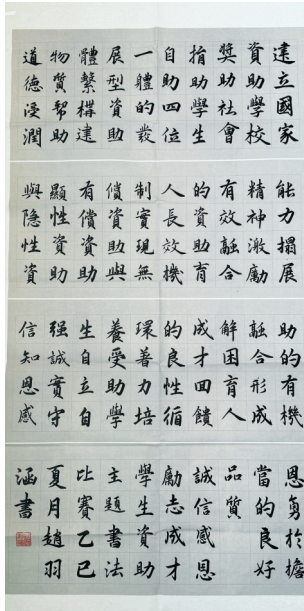 建立國家
資助學校
奬助社會
捐助學生
自助四位
一體的發
展型資助
體繫構建
物質幫助
道德浸潤
能力搨展
精神激勵
有效融合
的資助育
人長效機
制實現無
償資助與
有償資助
顯性資助
與隱性資
助的有機
融合形成
解困育人
成才回饋
的良性循
環著力培
養受助學
生自立自
强誠實守
信知恩感
恩勇於擔
當的良好
品質
誠信感恩
勵志成才
學生資助
主題書法
比賽乙巳
夏月趙羽
涵書